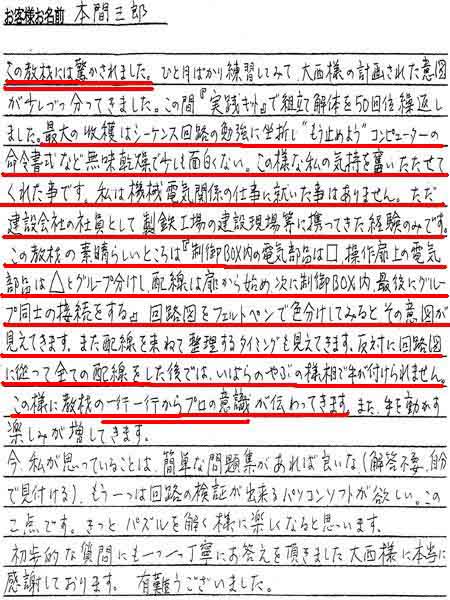 お客様お名前 本間三郎
この教材には驚かされました。ひと月ばかり練習してみて、大西様の計画された意図
が少しづつ分ってきました。この間『実践キット』で組立解体を50回位繰返し
ました。最大の収穫はシーケンス回路の勉強に挫折し"もう止めよう"コンピューターの
命令書式など無味乾燥で少しも面白くない。この様な私の気持を奮いたたせて
くれた事です。私は機械電気関係の仕事に就いた事はありません。ただ
建設会社の社員として製鉄工場の建設現場等に携ってきた経験のみです。
この教材の素晴らしいところは『制御BOX内の電気部品は□、操作扉上の電気
部品は△とグループ分けし、配線は扉から始め次に制御BOX内、最後にグルー
プ同士の接続をする』回路図をフェルトペンで色分けしてみるとその意図が
見えてきます。また配線を束ねて整理するタイミングも見えてきます。反対に回路図
に従って全ての配線をした後では、いばらのやぶの様相で手が付けられません。
この様に教材の一行一行からプロの意識が伝わってきます。また、手を動かす
楽しみが増してきます。
今、私が思っていることは、簡単な問題集があれば良いな(解答不要、自分
で見付ける)、もう一つは回路の検証が出来るパソコンソフトが欲しい。この
二点です。きっとパズルを解く様に楽しくなると思います。
初歩的な質問にも一つ一つ丁寧にお答えを頂きました大西様に本当に
感謝しております。 有難うございました。